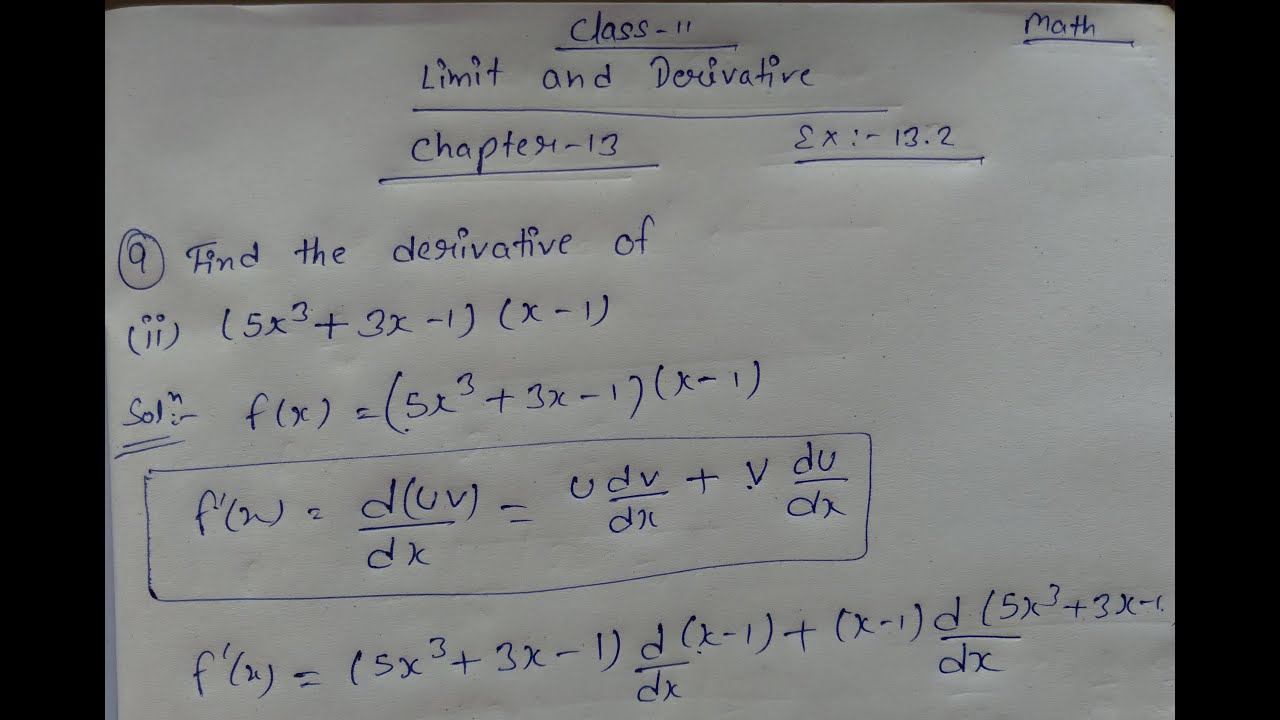 Class-11
Math
Limit and Derivative
Chapter-13
Ex:- 13.2
(9) Find the derivative of
(ii) (5x³ + 3x - 1) (x - 1)
Solⁿ:- f(x) = (5x³ + 3x - 1) (x - 1)
f'(x) = d(UV)/dx = U dv/dx + V dU/dx
f'(x) = (5x³ + 3x - 1) d/dx (x - 1) + (x - 1) d/dx (5x³ + 3x - 1